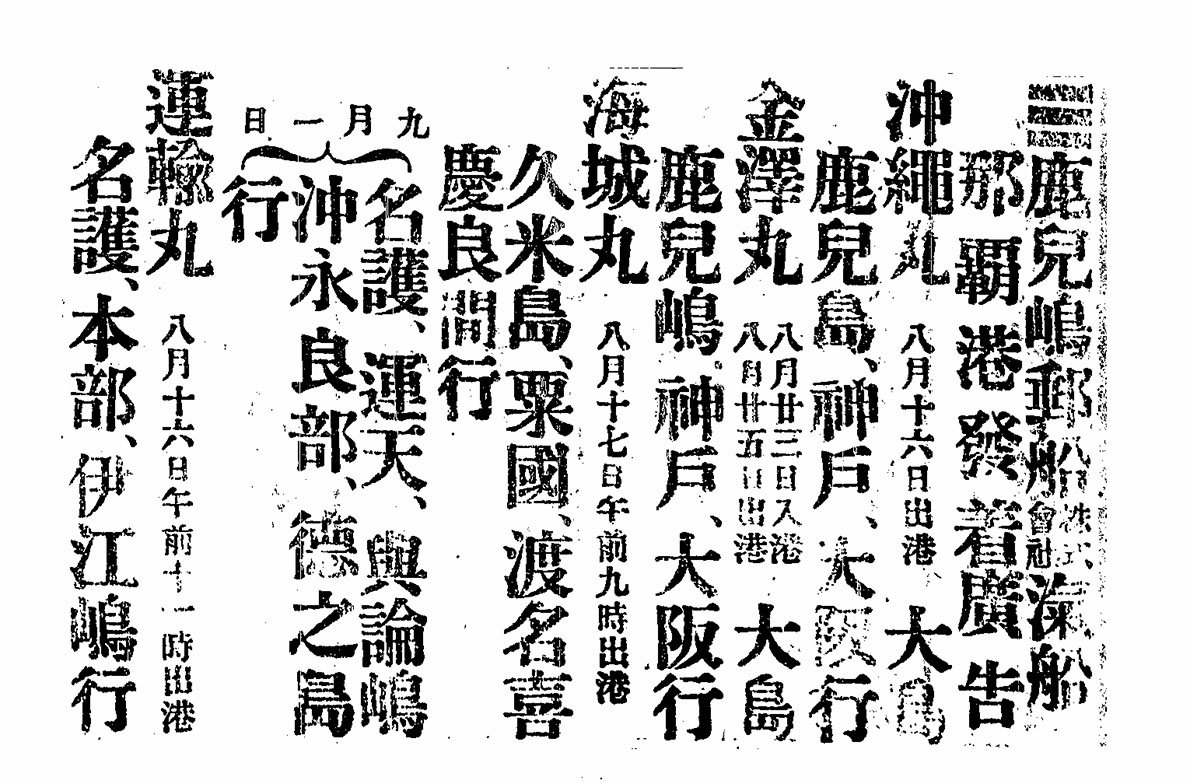 鹿兒嶋郵船株式會社滊船
那覇港發着廣告
沖繩丸 八月十六日出港 大島
鹿兒島、神戶、大阪行
金澤丸 八月廿三日入港 八月廿五日出港 大島
鹿兒嶋 神戶、大阪行
海城丸 八月十七日午前九時出港
久米島、粟國、渡名喜
慶良間行
九月一日
名護、運天、與論嶋
沖永良部、德之島
行
運輸丸 八月十六日午前十一時出港
名護、本部、伊江嶋行